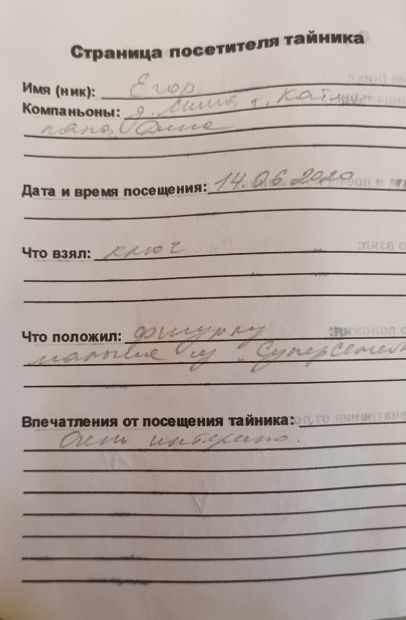 Страница посетителя тайника
Имя (ник): Егор
Компаньоны: д. Миша, т. Катя,
папа,
Дата и время посещения: 14.06.2020
Что взял: ключ
Что положил: фигурку
малыша из "Суперсемей
Впечатления от посещения тайника:
Очень интересно.